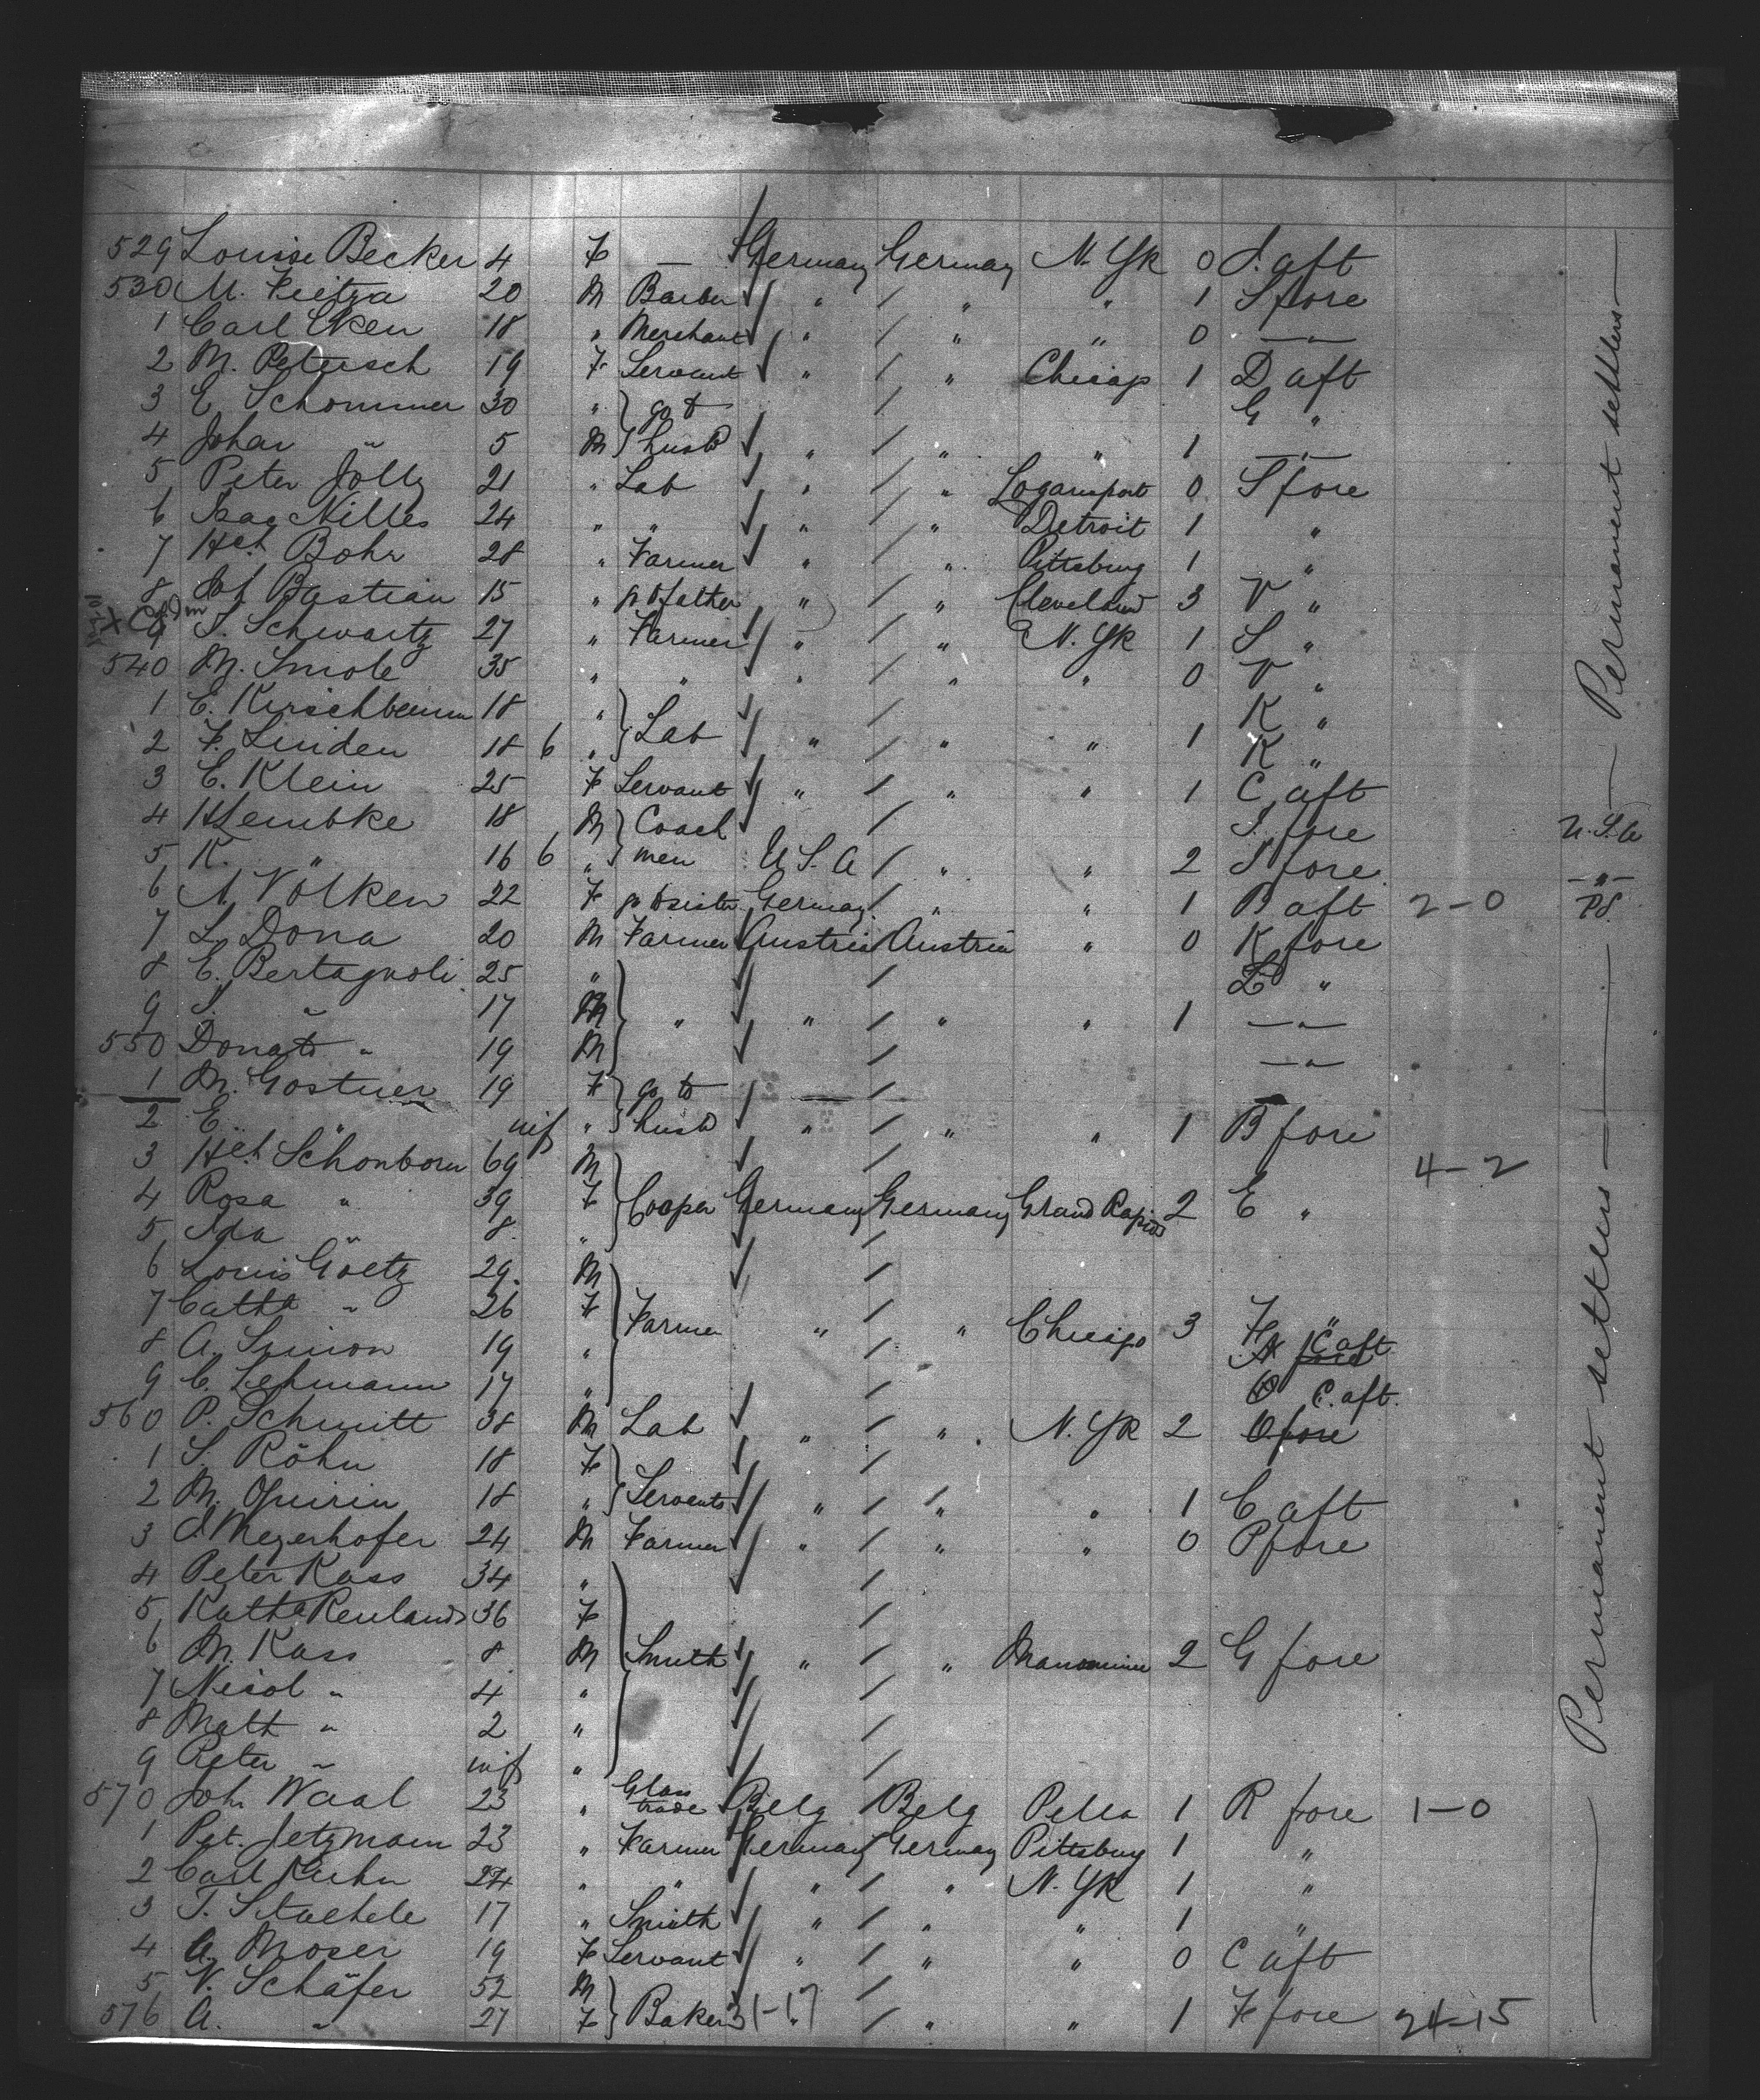 529 Louise Becker 4 F — Germany Germany N. Yk 0 S. aft
530 M. 20 M Barber " " " 1 S fore
1 Carl Eken 18 " Merchant " " " 0 —"—
2 M. Petersch 19 F Servant " " Chicago 1 D aft
3 E Schommer 30 " go to G "
4 Johan " 5 M husb " " " 1 —"—
5 Peter Jolly 21 " Lab " " Logansport 0 S fore
6 Isac Nilles 24 " " " " Detroit 1 "
7 Hch Bohr 28 " Farmer " " Pittsburg 1 "
8 Joh Bastian 15 " go to father " " Cleveland 3 V "
9 S. Schwartz 27 " Farmer " " N. Yk 1 S "
540 M. Smole 35 " " " " " 0 V "
1 E. Kirschbaum 18 " K "
2 F. Linden 18 6 " Lab " " " 1 K "
3 E. Klein 25 F Servant " " " 1 C aft
4 H Lembke 18 M Coach S. fore U. S. A
5 K. " 16 6 " men U S. A " " 2 S fore —"—
6 A Völken 22 F go to sister Germany " " 1 B aft 2-0 PS.
7 L. Dona 20 M Farmer Austria Austria " 0 K fore
8 E. Bertagnoli 25 " L "
9 S. " 17 M " " " " 1 —"—
550 Donato " 19 M —"—
1 M. Gostner 19 F go to —
2 E. " inf " husb " " " 1 B fore
3 Hch Schönborn 69 M 4-2
4 Rosa " 39 F Cooper Germany Germany Grand Rapids 2 E "
5 Ida " 8 "
6 Louis Goetz 29 M
7 Cath " 26 F Farmer " " Chicago 3 F "
8 A. Simon 19 " fore C aft
9 C. Lehmann 17 " O C. aft.
560 P. Schmitt 38 M Lab " " N. Yk 2 O fore
1 S. Röhn 18 F
2 M. Quirin 18 " Servants " " " 1 C aft
3 J. Meyerhofer 24 M Farmer " " " 0 P fore
4 Peter Kass 34 "
5 Katha Reuland 36 F
6 M. Kass 8 M Smith " " 2 G fore
7 Nicol " 4 "
8 Math " 2 "
9 Peter " inf "
570 Joh. Waal 23 " Glass trade Belg Belg Pella 1 R fore 1-0
1 Pet. Jetzmann 23 " Farmer Germany Germany Pittsburg 1 "
2 Carl Kuhn 24 " " " " N. Yk 1 "
3 T. Staehele 17 " Smith " " " 1 "
4 A. Moser 19 F Servant " " " 0 C aft
5 N. Schäfer 52 M
576 A. " 27 F Baker 31-17 " " 1 F fore 24-15
— Permanent settlers —
— Permanent settlers —